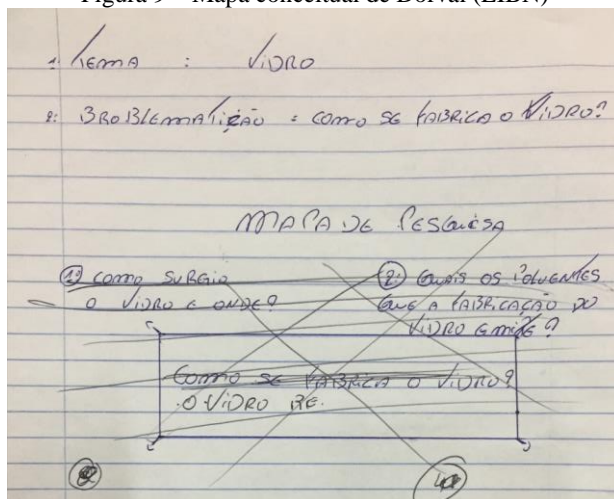 Figura 9 – Mapa conceitual de Dorval (LIBN)
1: TEMA : VIDRO
2: BROBLEMATIZAÇÃO : COMO SE FABRICA O VIDRO?
MAPA DE PESQUISA
1º COMO SURGIO
O VIDRO E ONDE?
2º QUAIS OS
QUE A FABRICAÇÃO DO
VIDRO EMITE?
COMO SE FABRICA O VIDRO?
O VIDRO RE.